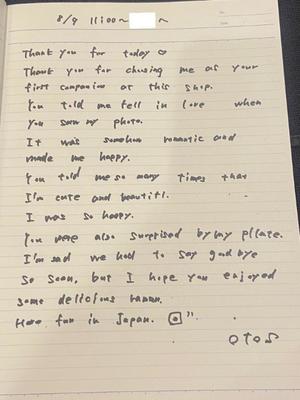 8/9 11:00~ ~
Thank you for today ♡
Thank you for chosing me as your
first companion at this shop.
You told me fell in love when
you saw my photo.
It was somehow romantic and
made me happy.
You told me so many times that
I'm cute and beautifl.
I was so happy.
You were also surprised by my pllate.
I'm sad we had to say goodbye
so soon, but I hope you enjoyed
some delicious ramen.
Have fun in Japan.